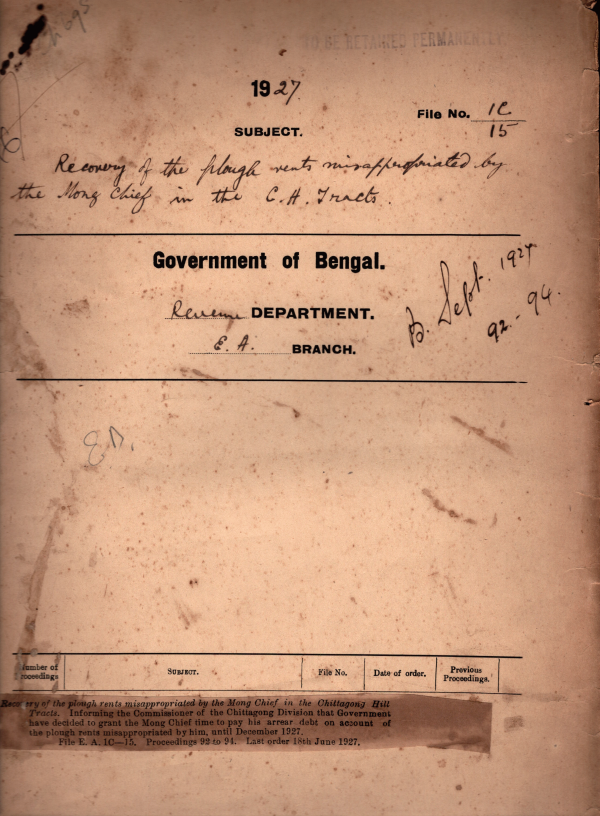 TO BE RETAINED PERMANENTLY
1927
File No. 1C
15
SUBJECT.
Recovery of the plough rents misappropriated by
the Mong Chief in the C. H. Tracts.
Government of Bengal.
Revenue DEPARTMENT.
E. A. BRANCH.
B. Sept. 1927
92 - 94.
Number of Proceedings
SUBJECT.
File No.
Date of order.
Previous Proceedings.
Recovery of the plough rents misappropriated by the Mong Chief in the Chittagong Hill
Tracts. Informing the Commissioner of the Chittagong Division that Government
have decided to grant the Mong Chief time to pay his arrear debt on account of
the plough rents misappropriated by him, until December 1927.
File E. A. 1C—15. Proceedings 92 to 94. Last order 18th June 1927.